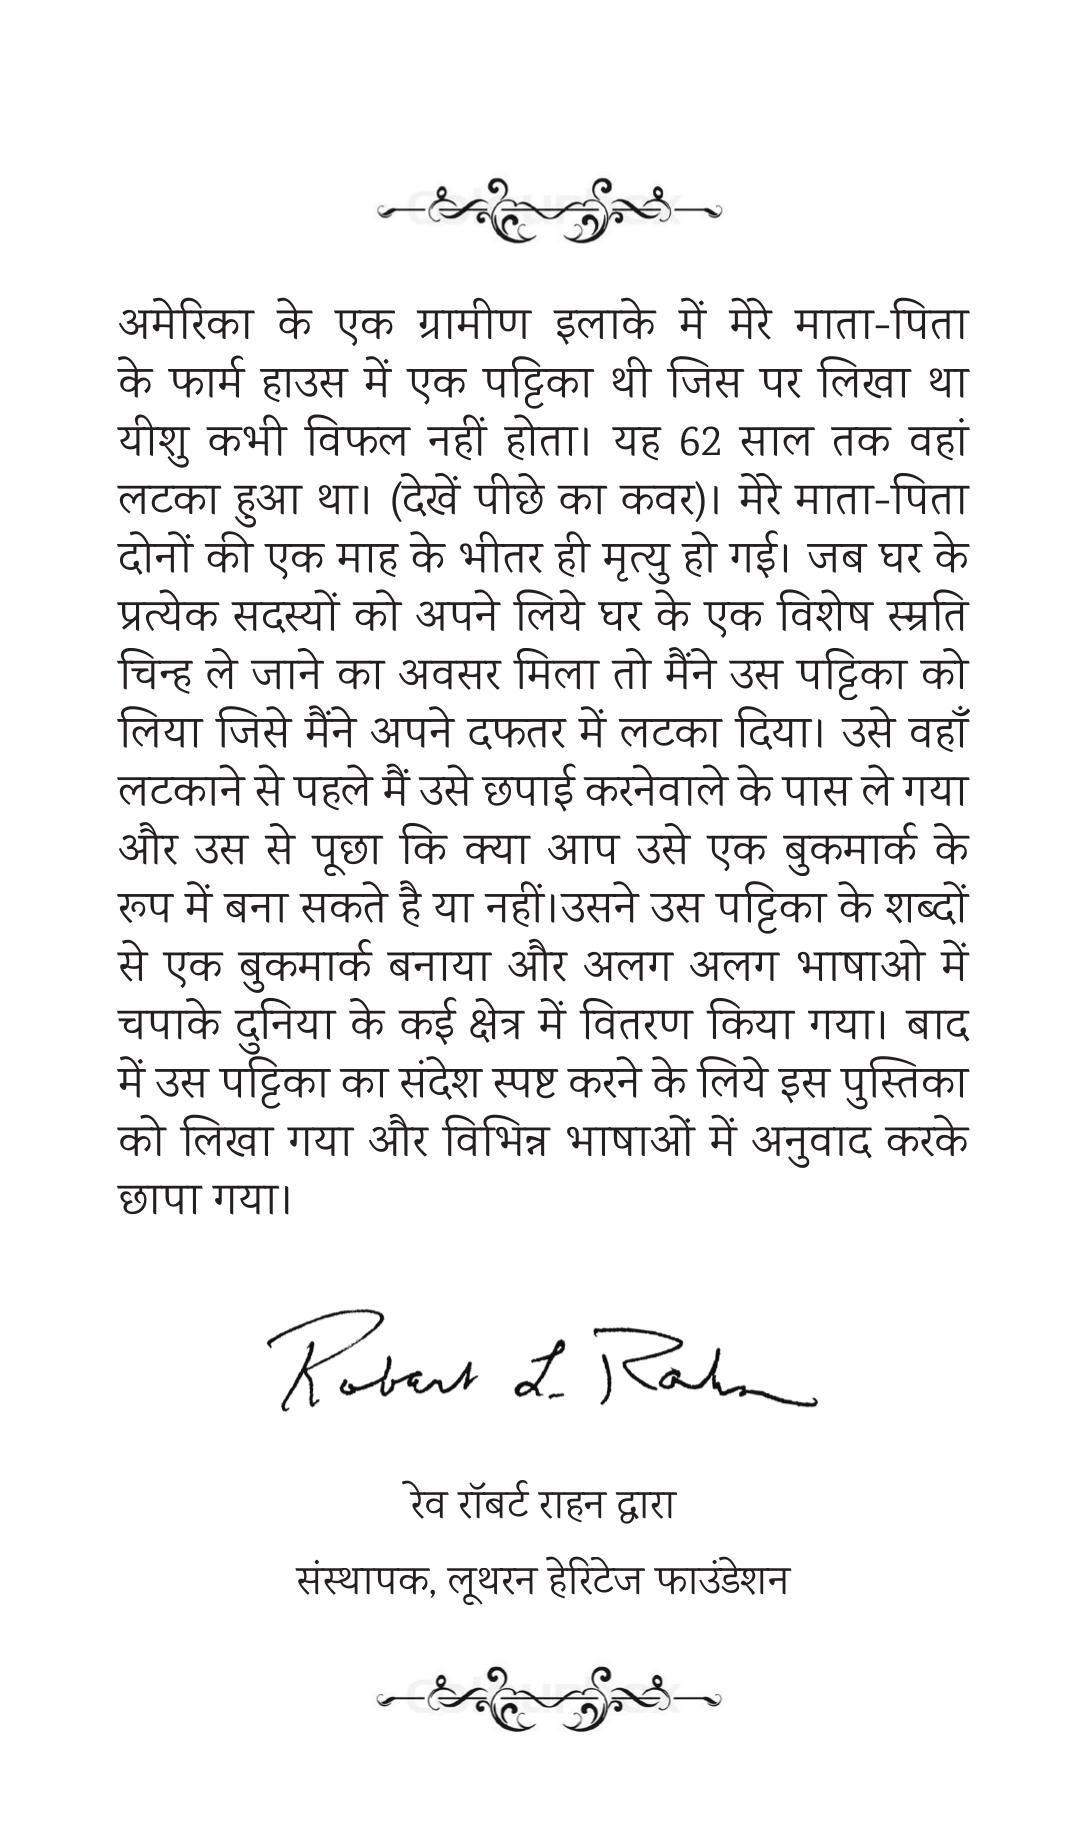 अमेरिका के एक ग्रामीण इलाके में मेरे माता-पिता
के फार्म हाउस में एक पट्टिका थी जिस पर लिखा था
यीशु कभी विफल नहीं होता। यह 62 साल तक वहां
लटका हुआ था। (देखें पीछे का कवर)। मेरे माता-पिता
दोनों की एक माह के भीतर ही मृत्यु हो गई। जब घर के
प्रत्येक सदस्यों को अपने लिये घर के एक विशेष स्म्रति
चिन्ह ले जाने का अवसर मिला तो मैंने उस पट्टिका को
लिया जिसे मैंने अपने दफतर में लटका दिया। उसे वहाँ
लटकाने से पहले मैं उसे छपाई करनेवाले के पास ले गया
और उस से पूछा कि क्या आप उसे एक बुकमार्क के
रूप में बना सकते है या नहीं।उसने उस पट्टिका के शब्दों
से एक बुकमार्क बनाया और अलग अलग भाषाओ में
चपाके दुनिया के कई क्षेत्र में वितरण किया गया। बाद
में उस पट्टिका का संदेश स्पष्ट करने के लिये इस पुस्तिका
को लिखा गया और विभिन्न भाषाओं में अनुवाद करके
छापा गया।
Robert L. Rahn
रेव रॉबर्ट राहन द्वारा
संस्थापक, लूथरन हेरिटेज फाउंडेशन